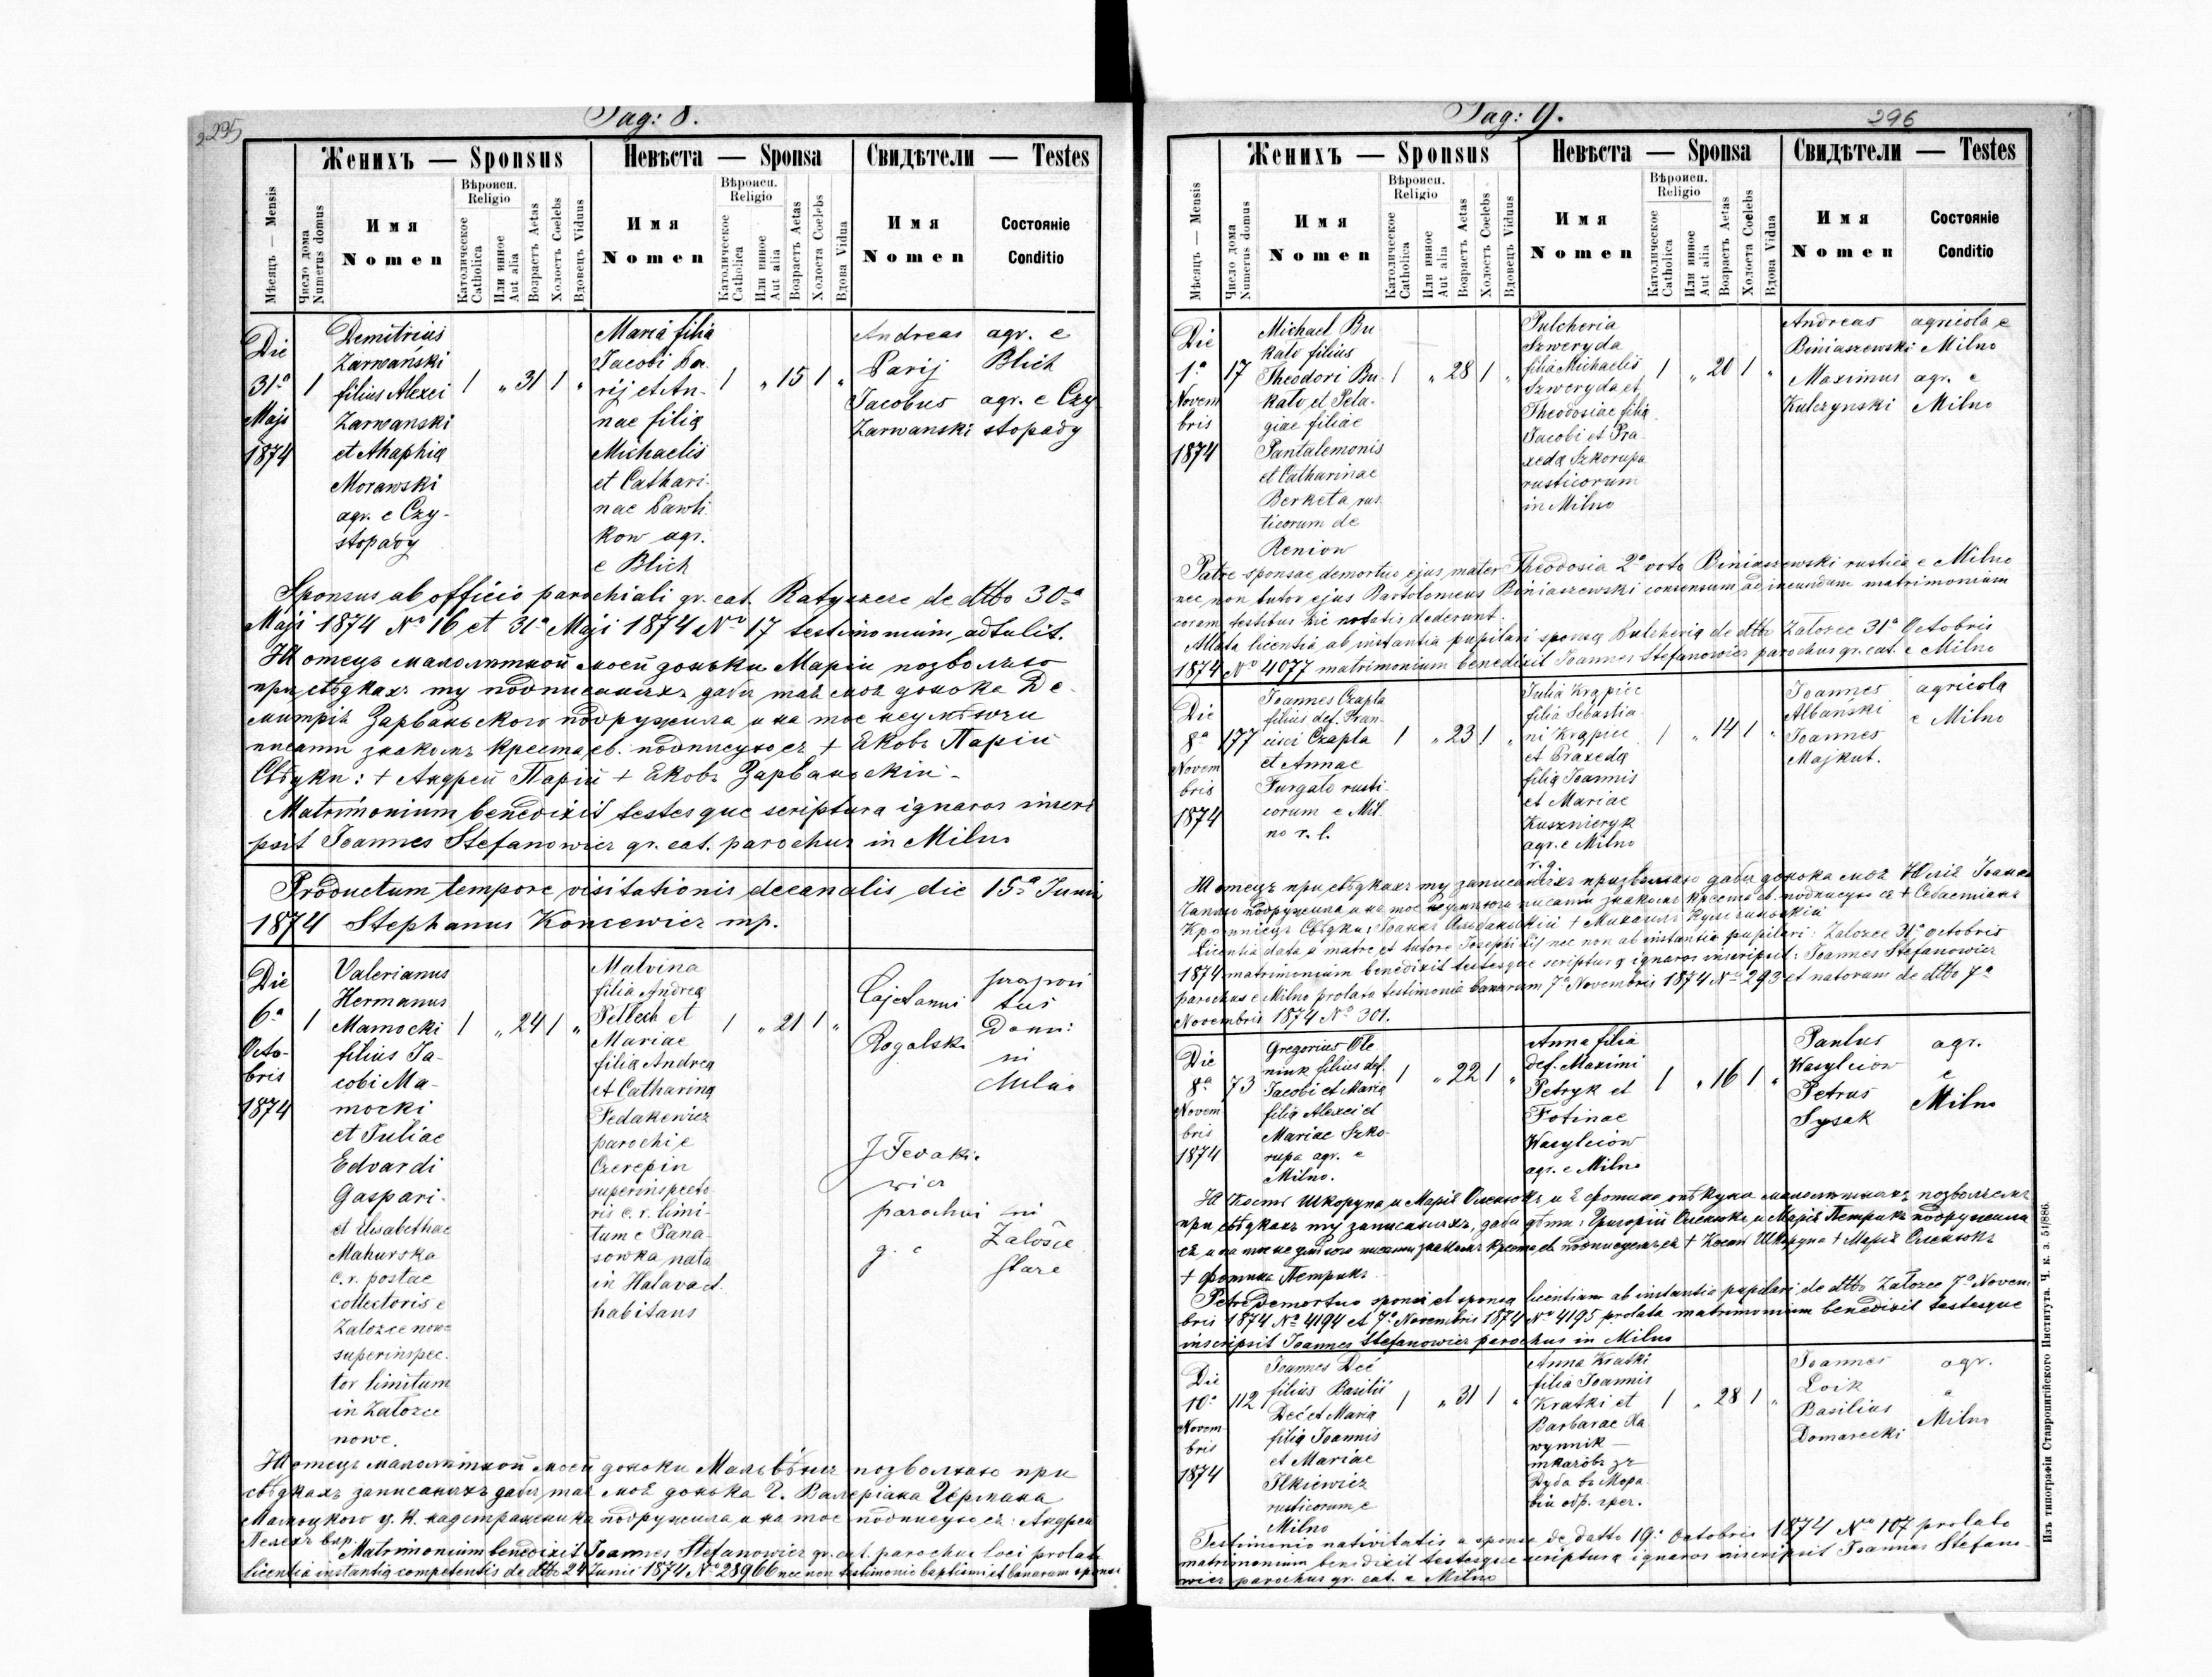 295
Pag: 8.
Женихъ — Sponsus
Невѣста — Sponsa
Свидѣтели — Testes
Мѣсяцъ — Mensis
Число дома
Numerus domus
Имя
Nomen
Вѣроисп.
Religio
Католическое
Catholica
Или инное
Aut alia
Возрастъ Aetas
Холостъ Coelebs
Вдовецъ Viduus
Имя
Nomen
Вѣроисп.
Religio
Католическое
Catholica
Или инное
Aut alia
Возрастъ Aetas
Холоста Coelebs
Вдова Vidua
Имя
Nomen
Состояніе
Conditio
Die
31ª
Maji
1874
1
Demitrius
Zarwański
filius Alexei
Zarwanski
et Ahaphia
Morawski
agr. e Czy-
stopady
1 „ 31 1 „
Maria filia
Jacobi Pa-
rij et An-
nae filia
Michaelis
et Cathari-
nae Pawli
kow agr.
e Blich
1 „ 15 1 „
Andreas agr. e
Parij Blich
Jacobus agr. e Czy
Zarwanski stopady
Sponsus ab officio parochiali gr. cat. Ratyszcze de dtto 30ª
Maji 1874 Nº 16 et 31ª Maji 1874 Nº 17 testimonium adtulit.
Я отецъ малолѣтной моей доньки Маріи позволяю
при свѣдкахъ ту подписаныхъ дабы тая моя донька Де-
митрія Зарваньского подружила и на тое неумѣючи
писати знакомъ креста св. подписуюся + Яковъ Парій
Свѣдки: + Андрей Парій + Яковъ Зарваньскій -
Matrimonium benedixit testesque scriptura ignaros inscri
psit Joannes Stefanowicz gr. cat. parochus in Milno
Productum tempore visitationis decanalis die 15ª Junii
1874 Stephanus Koncewicz mp.
Die
6ª
Octo-
bris
1874
1
Valerianus
Hermanus
Mamocki
filius Ja-
cobi Ma-
mocki
et Juliae
Edvardi
Gaspari-
et Elisabethae
Mahurska
c. r. postae
collectoris e
Zalozce nowe
superinspec-
tor limitum
in Zalozce
nowe.
1 „ 24 1 „
Malvina
filia Andrea
Pellech et
Mariae
filia Andrea
et Catharina
Fedakewicz
parochi e
Czerepin
superinspecto-
ris c. r. limi-
tum e Pana-
sowka nata
in Halava et
habitans
1 „ 21 1 „
Cajetanus
Rogalski
Domi-
ni
Milno
J Fedake
wicz
parochus
g. c
Załośce
Stare
Я отецъ малолѣтной моей доньки Мальвины позволяю при
свѣдкахъ записаныхъ дабы тая моя донька Г. Валеріана Германа
Мамоцкого подружила и на тое подписуюся: Андрей
Пелехъ
Matrimonium benedixit Joannes Stefanowicz gr. cat. parochus loci prolata
licentia instantia competentis de dtto 24 Junii 1874 Nº 28966 nec non testimonio baptismi et banorum sponsi
Pag: 9.
296
Женихъ — Sponsus
Невѣста — Sponsa
Свидѣтели — Testes
Мѣсяцъ — Mensis
Число дома
Numerus domus
Имя
Nomen
Вѣроисп.
Religio
Католическое
Catholica
Или инное
Aut alia
Возрастъ Aetas
Холостъ Coelebs
Вдовецъ Viduus
Имя
Nomen
Вѣроисп.
Religio
Католическое
Catholica
Или инное
Aut alia
Возрастъ Aetas
Холоста Coelebs
Вдова Vidua
Имя
Nomen
Состояніе
Conditio
Die
1ª
Novem
bris
1874
17
Michael Bu
kato filius
Theodori Bu-
kato et Pela-
giae filiae
Pantalemonis
et Catharinae
Berketa rus-
ticorum de
Reniow
1 „ 28 1 „
Pulcheria
Szweryda
filia Michaelis
Szweryda et
Theodosiae filia
Jacobi et Pra-
xeda Szkorupa
rusticorum
in Milno
1 „ 20 1 „
Andreas agricola e
Biniaszewski Milno
Maximus agr. e
Kulczynski Milno
Patre sponsae demortuo ejus mater Theodosia 2º voto Biniaszewski rustica e Milno
nec non tutor ejus Bartolomeus Biniaszewski consensum ad ineundum matrimonium
coram testibus hic notatis dederunt.
Allata licentia ab instantia pupilari sponsa Pulcheria de dtto Zalozce 31ª Octobris
1874 Nº 4077 matrimonium benedixit Joannes Stefanowicz parochus gr. cat. e Milno
Die
8ª
Novem
bris
1874
177
Joannes Czapla
filius def. Fran-
cisci Czapla
et Annae
Furgalo rusti-
corum e Mil-
no r. l.
1 „ 23 1 „
Julia Krąpiec
filia Sebastia-
ni Krąpiec
et Praxeda
filia Joannis
et Mariae
Kusznieryk
agr. e Milno
r. g.
1 „ 14 1 „
Joannes agricola
Albański e Milno
Joannes
Majkut.
Я отецъ при свѣдкахъ ту записаныхъ призволяю дабы донька моя Юлія Іоана
Чаплю подружила и на тое неумѣючи писати знакомъ креста св. подписуюся + Себастіянъ
Кромпѣцъ Свѣдки: Іоанъ Альбаньскій + Михаилъ Кульчиньскій
Licentia data a matre et tutore nec non ab instantia pupilari: Zalozce 31ª octobris
1874 matrimonium benedixit testesque scriptura ignaros inscripsit: Joannes Stefanowicz
parochus e Milno prolata testimonia banorum 7ª Novembris 1874 Nº 293 et natorum de dtto 7ª
Novembris 1874 Nº 301.
Die
8ª
Novem
bris
1874
73
Gregorius Ole
niuk filius def.
Jacobi et Maria
filia Alexei et
Mariae Szko-
rupa agr. e
Milno.
1 „ 22 1 „
Anna filia
def. Maximi
Petryk et
Fotinae
Wasylciow
agr. e Milno
1 „ 16 1 „
Paulus agr.
Wasylciow e
Petrus Milno
Sysak
Я Костъ Шкорупа и Марія Оленюкъ и я Фотина опѣкуны малолѣтныхъ позволяемъ
при свѣдкахъ ту записаныхъ, дабы дѣти: Григорій Оленюкъ и Марія Петрикъ подружила
ся и на тое писати знакомъ креста св. подписуемъся + Костъ Шкорупа + Марія Оленюкъ
+ Фотина Петрикъ
Patre demortuo sponsi et sponsa licentiam ab instantia pupilari de dtto Zalozce 7ª Novem
bris 1874 Nº 4194 et 7ª Novembris 1874 Nº 4195 prolata matrimonium benedixit testesque
inscripsit Joannes Stefanowicz parochus in Milno
Die
10ª
Novem
bris
1874
112
Joannes Deć
filius Basilii
Deć et Maria
filia Joannis
et Mariae
Ilkiewicz
rusticorum e
Milno
1 „ 31 1 „
Anna Kratki
filia Joannis
Kratki et
Barbarae Ha
wynnik —
ткачôвъ зъ
Дуба въ Мора
віи обр. греr.
1 „ 28 1 „
Joannes agr.
Loik e
Basilius Milno
Domarecki
Testimonio nativitatis a sponse de datto 19ª Octobris 1874 Nº 107 prolato
matrimonium benedixit testesque scriptura ignaros inscripsit Joannes Stefano-
wicz parochus gr. cat. e Milno
Изъ типографіи Ставропигійского Института. Ч. к. з. 51/886.